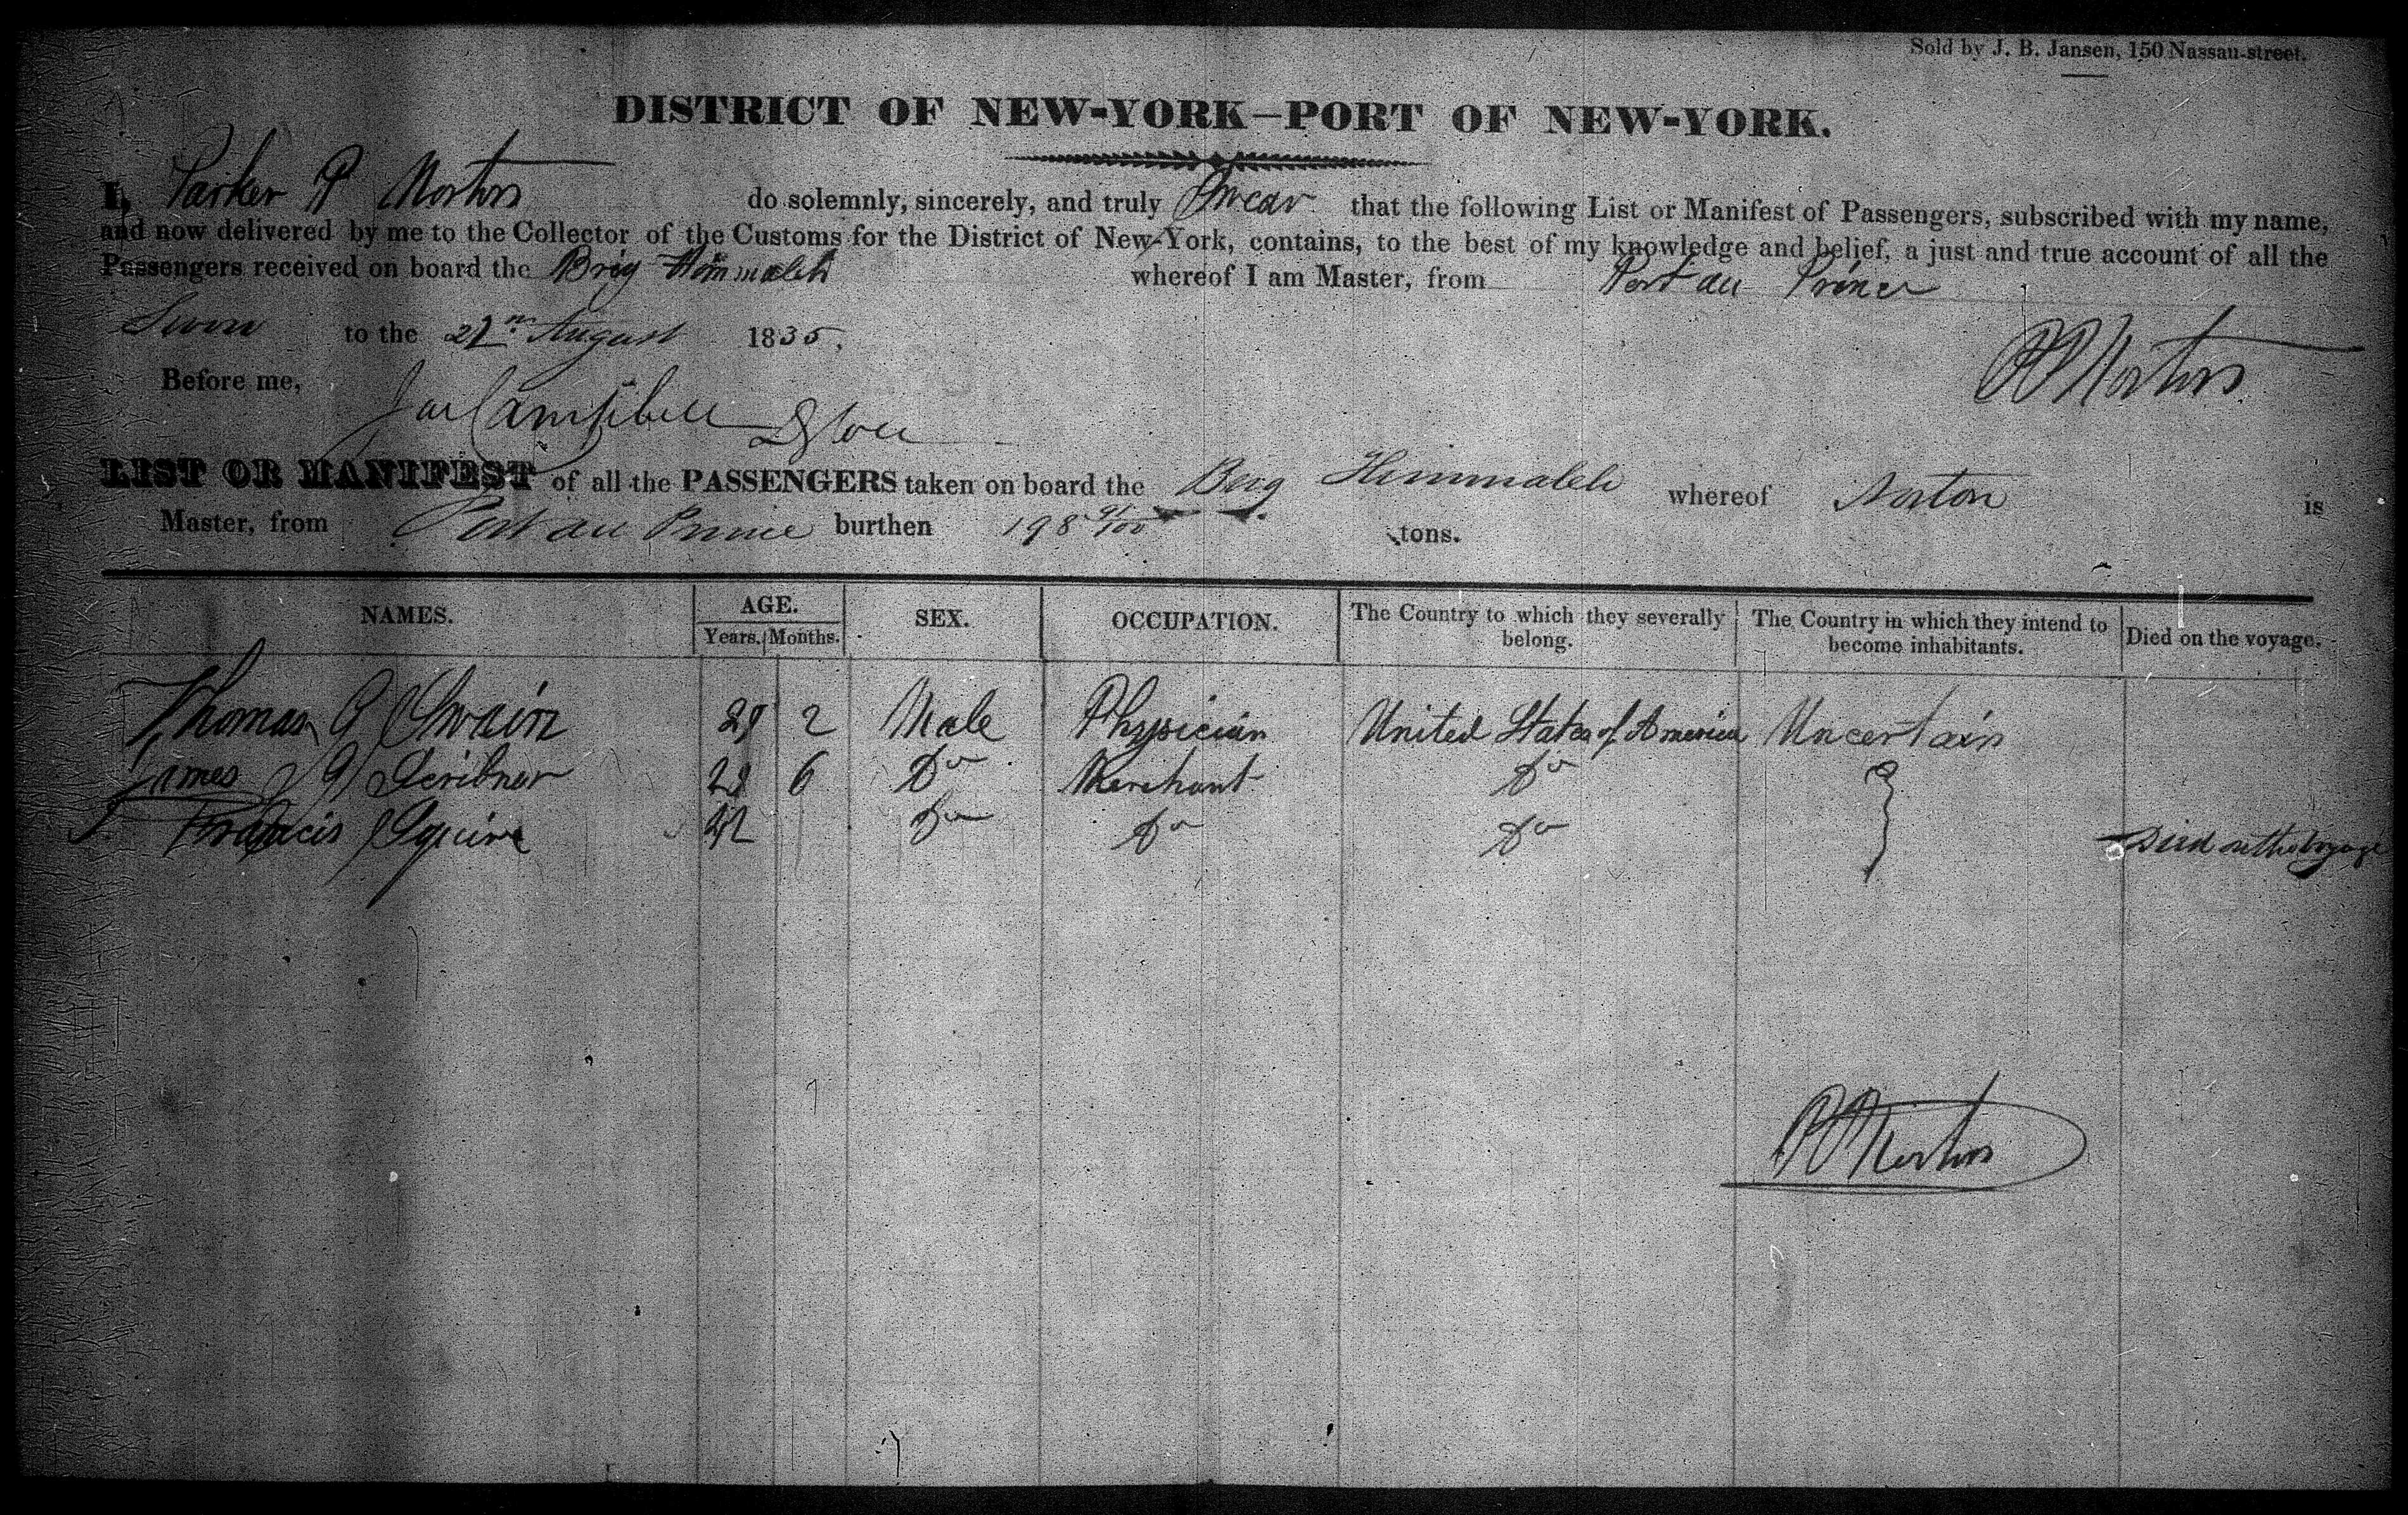 Sold by J. B. Jansen, 150 Nassau-street.
DISTRICT OF NEW-YORK—PORT OF NEW-YORK.
I, Parker P Norton do solemnly, sincerely, and truly Swear that the following List or Manifest of Passengers, subscribed with my name,
and now delivered by me to the Collector of the Customs for the District of New-York, contains, to the best of my knowledge and belief, a just and true account of all the
Passengers received on board the Brig Himmaleh whereof I am Master, from Port au Prince
Sworn to the August 1835.
P P Norton
Before me,
Campbell
LIST OR MANIFEST of all the PASSENGERS taken on board the Brig Himmaleh whereof Norton is
Master, from Port au Prince burthen 198 tons.
NAMES. AGE. SEX. OCCUPATION. The Country to which they severally belong. The Country in which they intend to become inhabitants. Died on the voyage.
Years. Months.
Thomas Swain 29 2 Male Physician United States of America Uncertain
James Scribner 28 6 Do Merchant Do
Francis Squire Do Do Do Died on the voyage
P P Norton